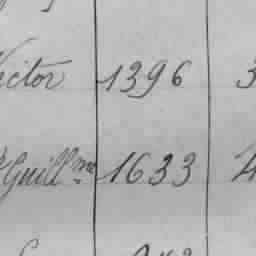 ector 1396 3
Guill.me 1633 4